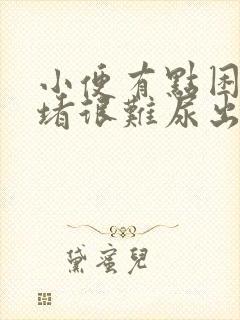 小便有點困
堵很難尿出
黛蜜兒